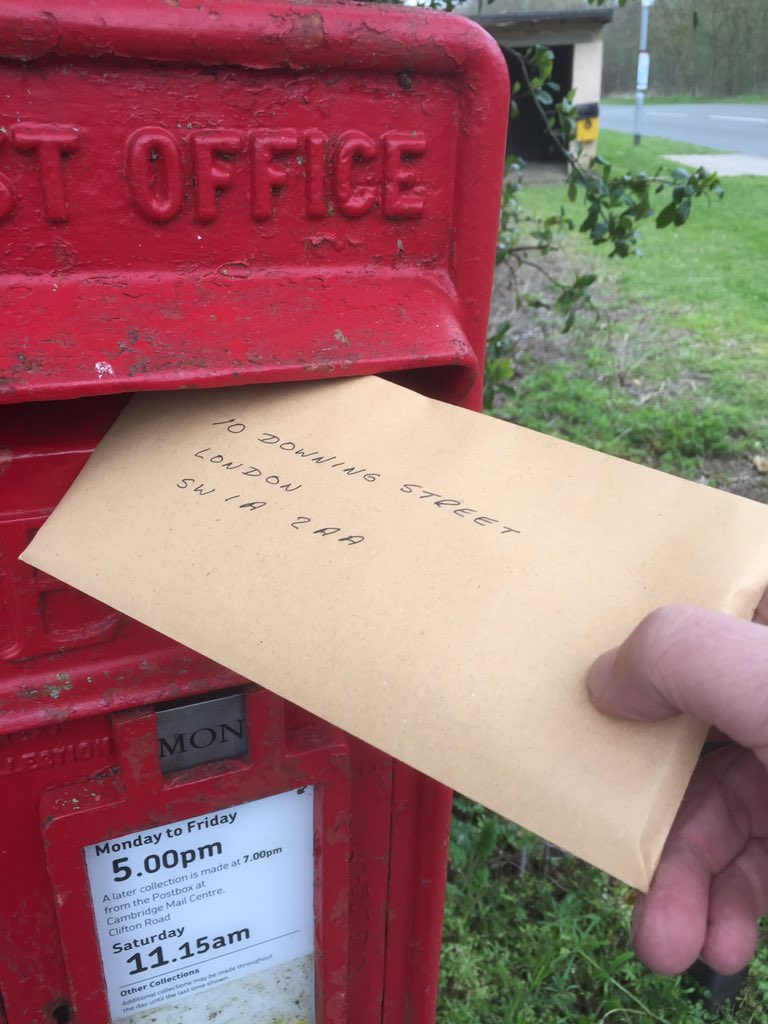 ST OFFICE
10 DOWNING STREET
LONDON
SW1A 2AA
MON
LLECTION
Monday to Friday
5.00pm
A later collection is made at 7.00pm
from the Postbox at
Cambridge Mail Centre,
Clifton Road
Saturday
11.15am
Other Collections
Additional collections may be made throughout
the day until the last time shown.